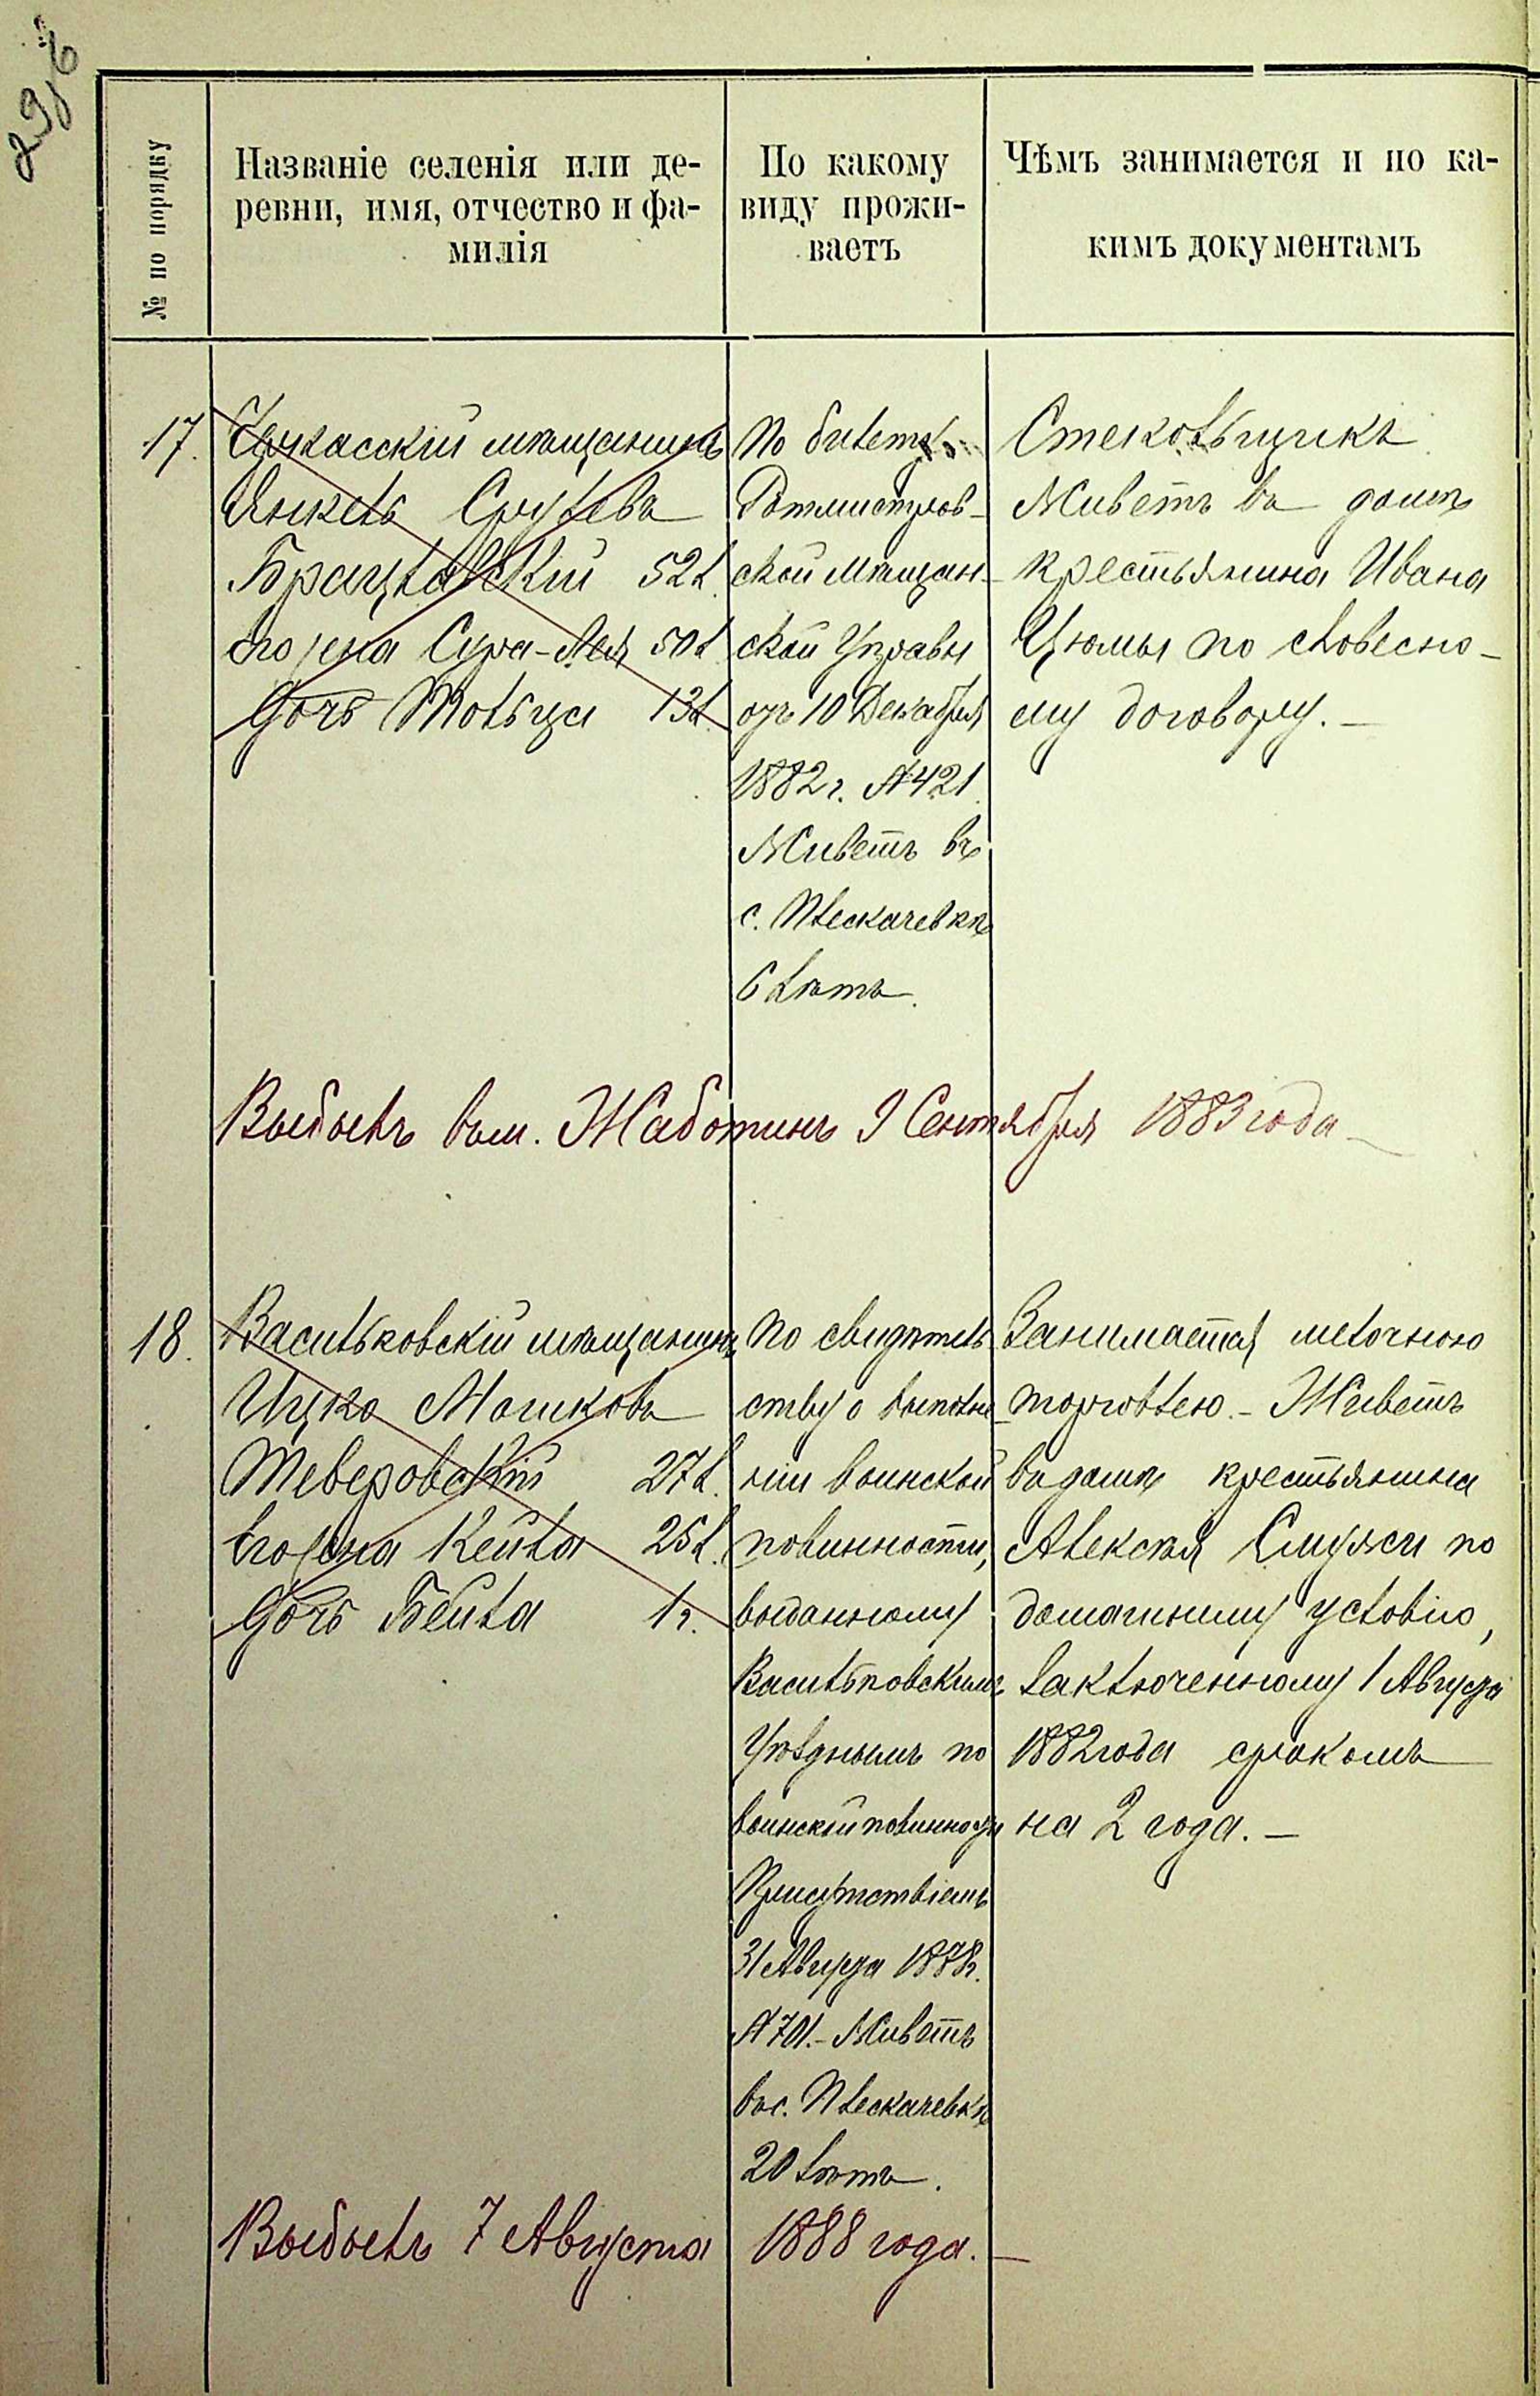 293б
№ по порядку
Названіе селенія или де-
ревни, имя, отчество и фа-
милія
По какому
виду прожи-
ваетъ
Чѣмъ занимается и по ка-
кимъ документамъ
17.
Черкасскій мѣщанинъ
Янкель Срулевъ
Брацлавскій 52 л.
его жена Сура-Лея 50 л.
Дочь Тольца 13 л.
По билету
Ротмистров-
ской Мѣщан-
ской Управы
отъ 10 Декабря
1882 г. №421.
Живетъ въ
с. Плескачевкѣ
6 лѣтъ.
Стекольщикъ.
Живетъ въ домѣ
крестьянина Ивана
Цюмы по словесно-
му договору. —
Выбылъ въ м. Жаботинъ 9 Сентября 1883 года —
18.
Васильковскій мѣщанинъ
Ицко Мошковъ
Теверовскій 27 л.
его жена Кейла 25 л.
Дочь Бейла 1 г.
По свидѣтель-
ству о выполне-
ніи воинской
повинности,
выданному
Васильковскимъ
Уѣзднымъ по
воинской повинности
Присутствіемъ
31 Августа 1878 г.
№ 701. - Живетъ
въ с. Плескачевкѣ
20 лѣтъ.
Занимается мелочною
торговлею. - Живетъ
въ домѣ крестьянина
Алексѣя по
домашнему условію,
заключенному 1 Августа
1882 года срокомъ
на 2 года. —
Выбылъ 7 Августа 1888 года. —